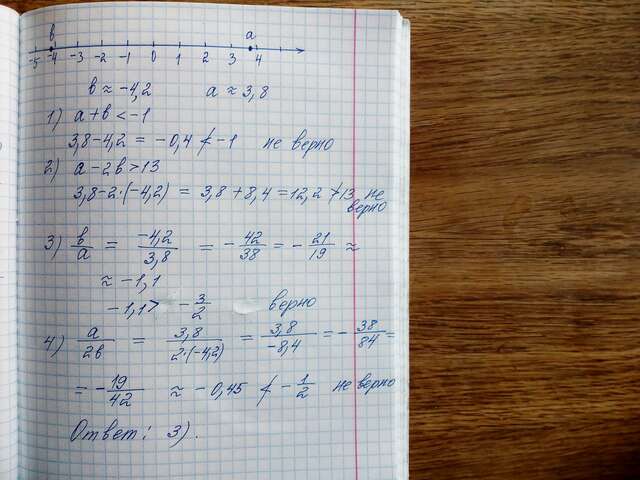 в а
-5 -4 -3 -2 -1 0 1 2 3 4
в ≈ -4,2 а ≈ 3,8
1) а+в < -1
3,8-4,2 = -0,4 ≮ -1 не верно
2) а-2в > 13
3,8-2·(-4,2) = 3,8+8,4 = 12,2 ≯ 13 не
верно
3) в/а = -4,2/3,8 = -42/38 = -21/19 ≈
≈ -1,1
-1,1 > -3/2 верно
4) а/2в = 3,8/2·(-4,2) = 3,8/-8,4 = -38/84 =
= -19/42 ≈ -0,45 ≮ -1/2 не верно
Ответ: 3).